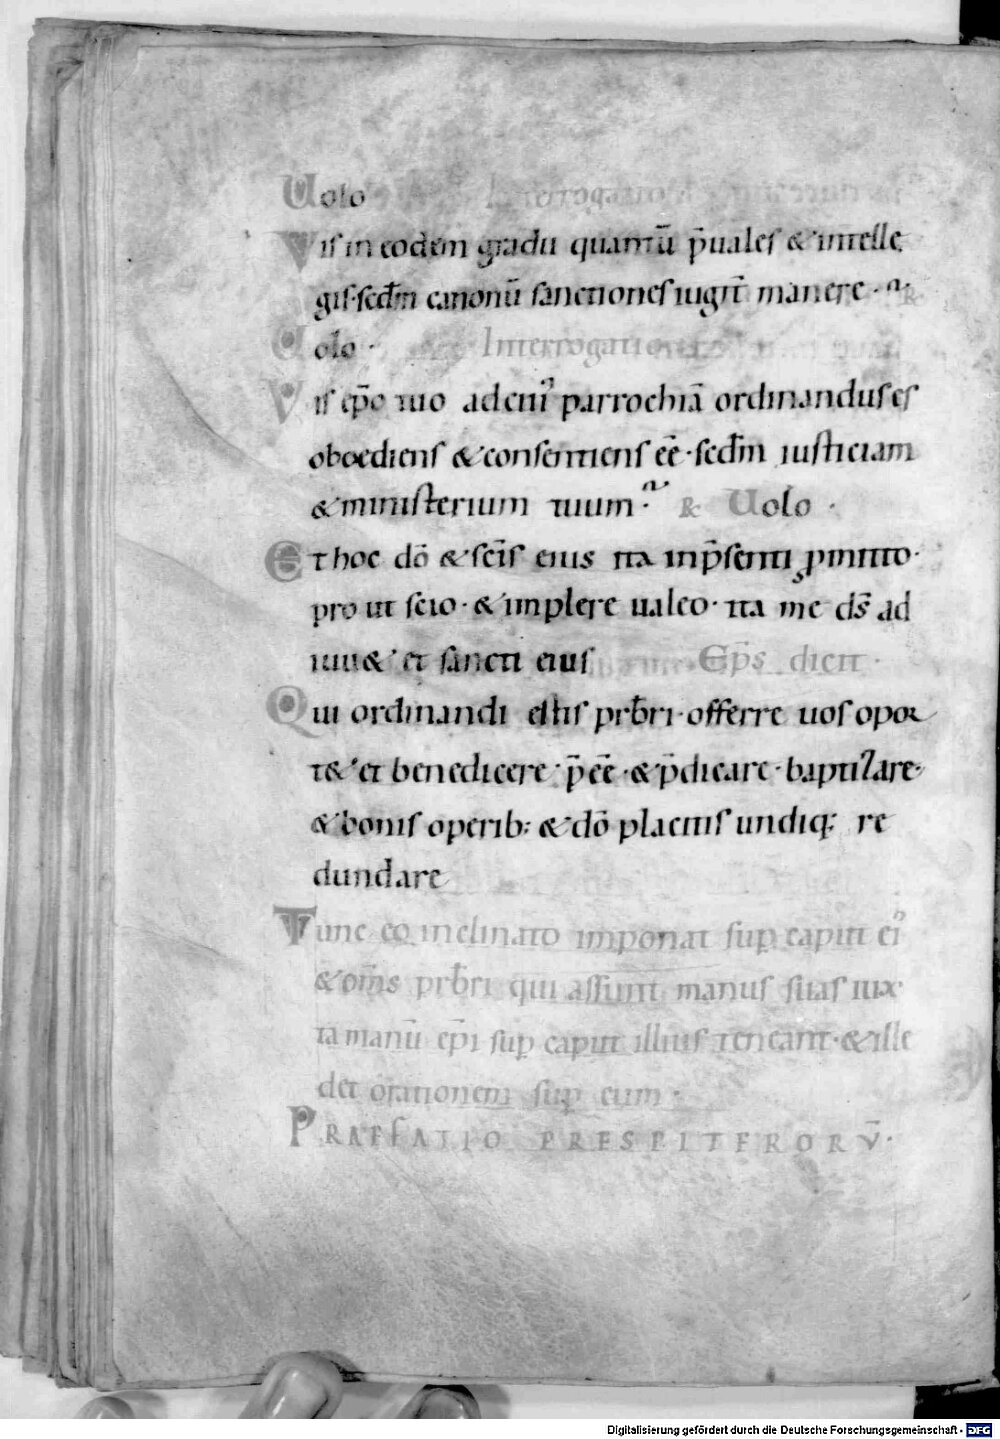 Uolo Interrogatio
Vis in eodem gradu quantū p̄uales & intelle
gis· scd̄m canonū sanctiones iugit̄ manere · R
Uolo · Interrogatio
Vis ep̄o tuo ad cui᾽ parrochiā ordinandus es
oboediens & consentiens eē · scd̄m iusticiam
& ministerium tuum · R Uolo ·
Et hoc dō & sc̄is eius ita in p̄senti ꝓmitto·
pro ut scio· & implere ualeo· ita me ds̄ ad
iuu& et sancti eius Ep̄s dicit ·
Qui ordinandi estis prb̄ri· offerre uos opor
t& et benedicere· p̄eē · & p̄dicare· baptizare·
& bonis operib; & dō placitis undiq; re
dundare
Tunc eo inclinato imponat suꝑ caput ei᾽
& om̄s prb̄ri qui assunt manus suas iux
ta manū ep̄i suꝑ caput illius teneant· & ille
det orationem suꝑ eum ·
PRAEFATIO PRESBITERORV̄·
Digitalisierung gefördert durch die Deutsche Forschungsgemeinschaft - DFG